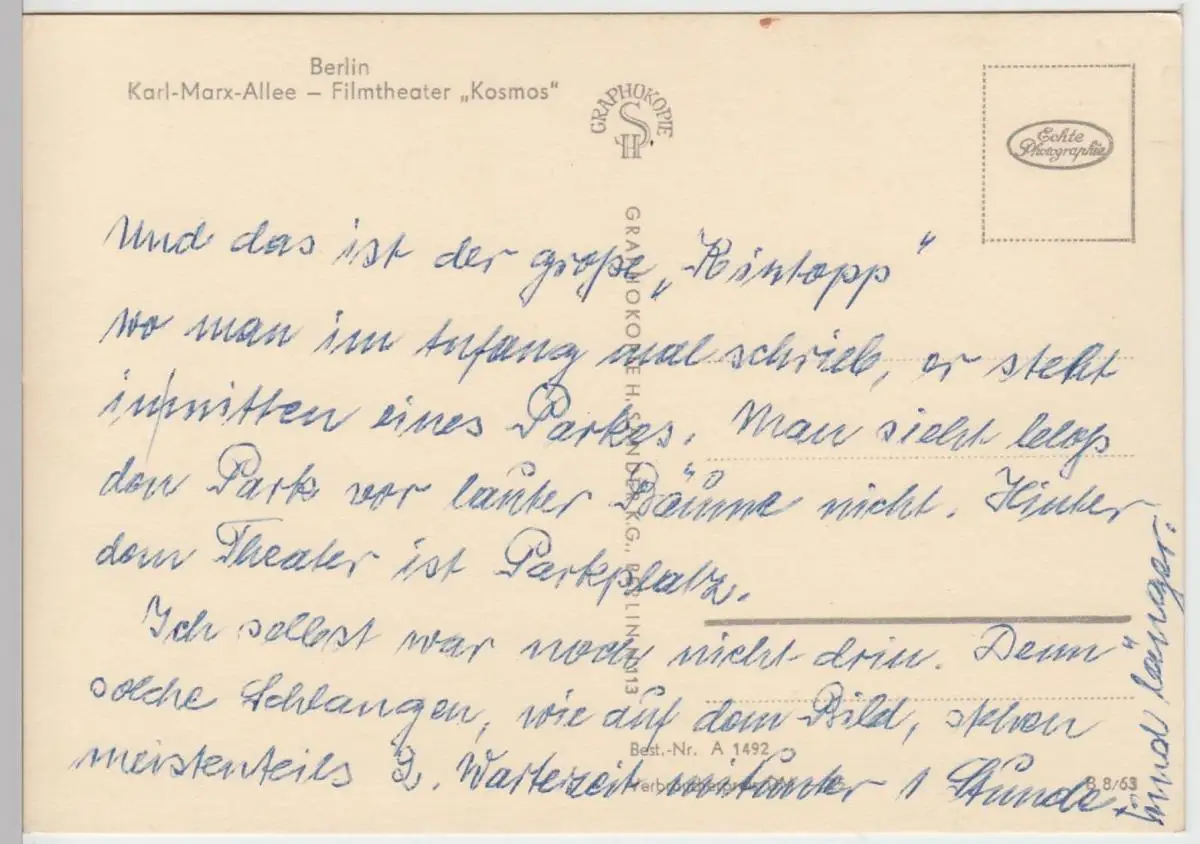 Berlin
Karl-Marx-Allee – Filmtheater „Kosmos"
GRAPHOKOPIE
SH
Echte
Photographie
Und das ist der große „Kintopp"
wo man im Anfang mal schrieb, er steht
inmitten eines Parkes. Man sieht bloß
den Park vor lauter Bäume nicht. Hinter
dem Theater ist Parkplatz.
Ich selbst war noch nicht drin. Denn
solche Schlangen, wie auf dem Bild, stehen
meistenteils 3. Wartezeit mitunter 1 Stunde
und länger.
GRAPHOKOPIE H. SANDER K.G., BERLIN N 113
Best.-Nr. A 1492
B 8/63